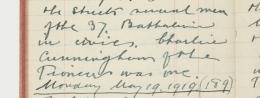 the streets several men
of the 37. Battalion
in civies. Charlie
Cunningham of the
Pioneers was one.
Monday, May 19, 1919 (189)